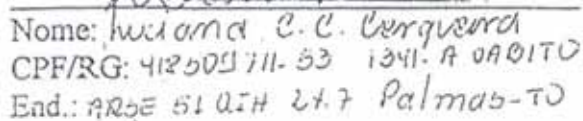 Nome: Luciana C. C. Cerqueira
CPF/RG: 412509711-53 1341.A OAB/TO
End.: ARSE 51 QIH Lt.7 Palmas-TO